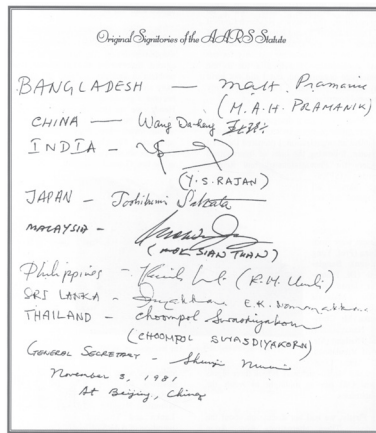 Original Signitories of the AARS Statute
BANGLADESH —
(M.A.H. PRAMANIK)
CHINA — Wang Da-heng
INDIA -
(Y.S. RAJAN)
JAPAN - Toshibumi Sakata
MALAYSIA -
(MOK SIAN TUAN)
Philippines - (R.M. Umali)
SRI LANKA - E.K.
THAILAND - Choompol Swasdiyakorn
(CHOOMPOL SWASDIYAKORN)
GENERAL SECRETARY - Shunji Murai
November 3, 1981
At Beijing, China